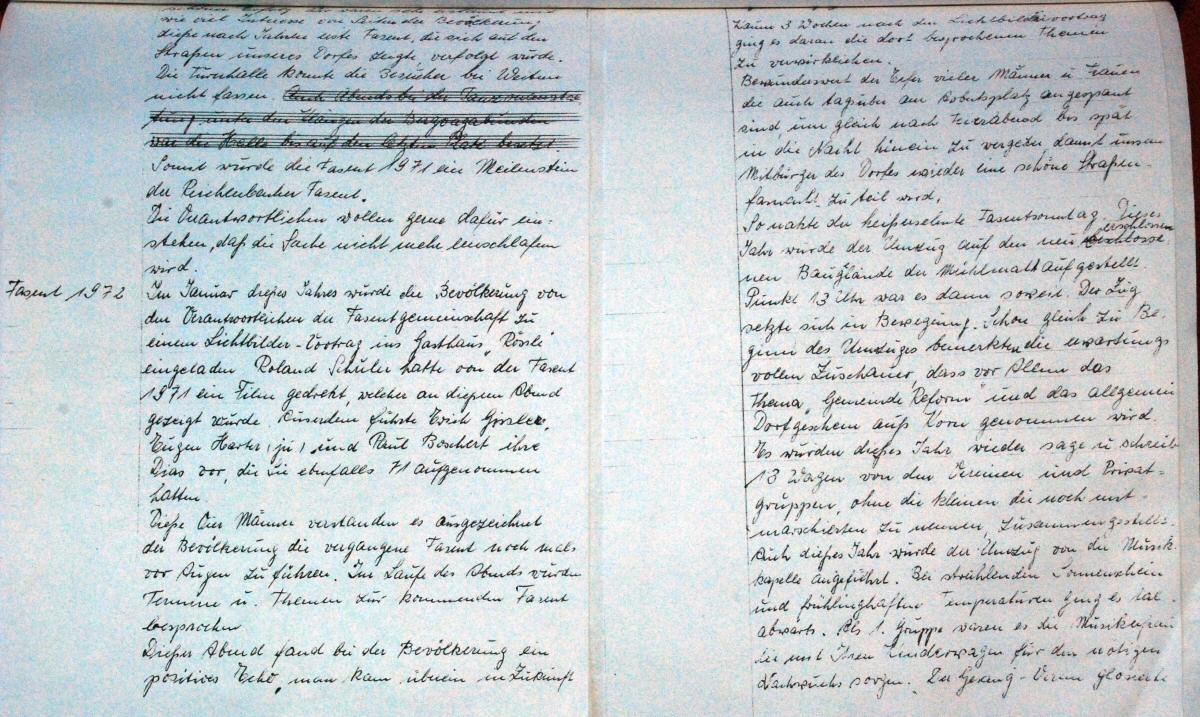 wie viel Interesse von Seiten der Bevölkerung
dieße nach Jahren erste Fasent, die sich auf den
Straßen unseres Dorfes zeigte, verfolgt wurde.
Die Turnhalle konnte die Besucher bei Weitem
nicht fassen. Auch Abends bei der Tanzveranstal
tung, unter den Klängen der Bergvagabunden
war die Halle bis auf den letzten Platz besetzt.
Somit wurde die Fasent 1971 ein Meilenstein
der Reichenbacher Fasent.
Die Verantwortlichen wollen gerne dafür ein-
stehen, daß die Sache nicht mehr einschlafen
wird.
Fasent 1972
Im Januar dießes Jahres wurde die Bevölkerung von
den Verantwortlichen der Fasentgemeinschaft zu
einem Lichtbilder-Vortrag ins Gasthaus "Rössle"
eingeladen Roland Schüler hatte von der Fasent
1971 ein Film gedreht, welcher an dießem Abend
gezeigt wurde. Auserdem führte Erich Göhler,
Eugen Harter (ju) und Paul Boschert ihre
Dias vor, die sie ebenfalls 71 aufgenommen
hatten.
Dieße Vier Männer verstanden es ausgezeichnet
der Bevölkerung die vergangene Fasent noch mals
vor Augen zu führen. Im Laufe des Abends wurden
Termine u. Themen zur kommenden Fasent
besprochen
Dießer Abend fand bei der Bevölkerung ein
positives Echo, man kam überein in Zukunft
Kaum 3 Wochen nach den Lichtbildervortrag
ging es daran die dort besprochenen Themen
zu verwirklichen.
Bewunderswert der Eifer vieler Männer u Frauen
die auch tagsüber am Arbeitsplatz angespant
sind, um gleich nach Feierabend bis spät
in die Nacht hinein zu
damit unsern
Mitbürger des Dorfes wieder eine schöne Straßen-
fasnacht zu teil wird.
So nahte der heißersehnte Fasentsonntag. Dieses
Jahr wurde der Umzug auf den neu erschlosse
erschlossen
nen Baugelände der Mühlmatt aufgestellt
Punkt 13 Uhr war es dann soweit. Der Zug
setzte sich in Bewegung. Schon gleich zu Be-
ginn des Umzuges bemerkten die erwartungs
vollen Zuschauer, dass vor Allem das
Thema "Gemeinde Reform" und das allgemein
Dorfgeschehn aufs Korn genommen wird.
Es wurden dießes Jahr wieder sage u schreib
13 Wagen von den Vereinen und Privat-
gruppen, ohne die kleinen die noch mit-
marschierten zu nennen, zusammengestellt.
Auch dießes Jahr wurde der Umzug von der Musik
kapelle angeführt. Bei strahlenden Sonnenschein
und frühlinghaften Temperaturen ging es tal-
abwärts. Als 1. Gruppe waren es die Musikerfrau
die mit Ihren Kinderwagen für den nötigen
Nachwuchs sorgen. Der Gesang-Verein glosierte